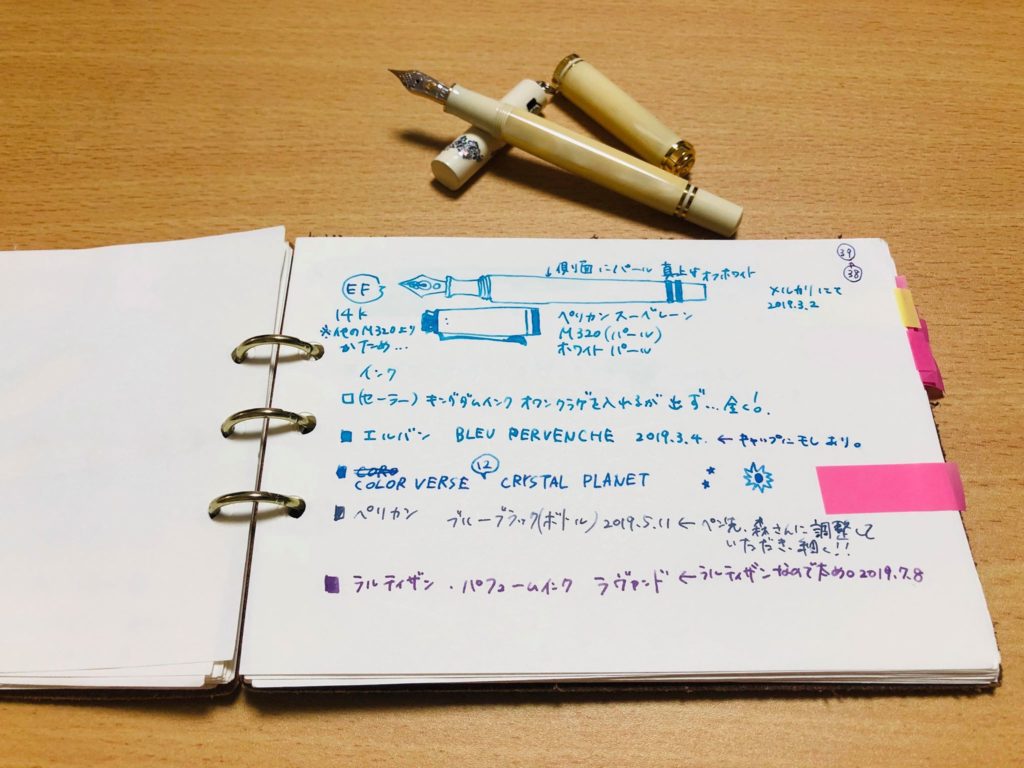 39
38
↓側面にパール 真上はオフホワイト
EF
14K
※他のM320より
かため...
ペリカン スーベレーン
M320(パール)
ホワイトパール
メルカリにて
2019.3.2
インク
□(セーラー) キングダムインク オワンクラゲを入れるが 出ず...全く!。
■ エルバン BLEU PERVENCHE 2019.3.4. ← キャップにもしあり。
■ CORO
COLOR VERSE ⑫ CRYSTAL PLANET
■ ペリカン ブルーブラック(ボトル) 2019.5.11 ← ペン先、森さんに調整して
いただき、細く!!
■ ラルティザン・パフュームインク ラヴァンド ←ラルティザンなのでため。2019.7.8